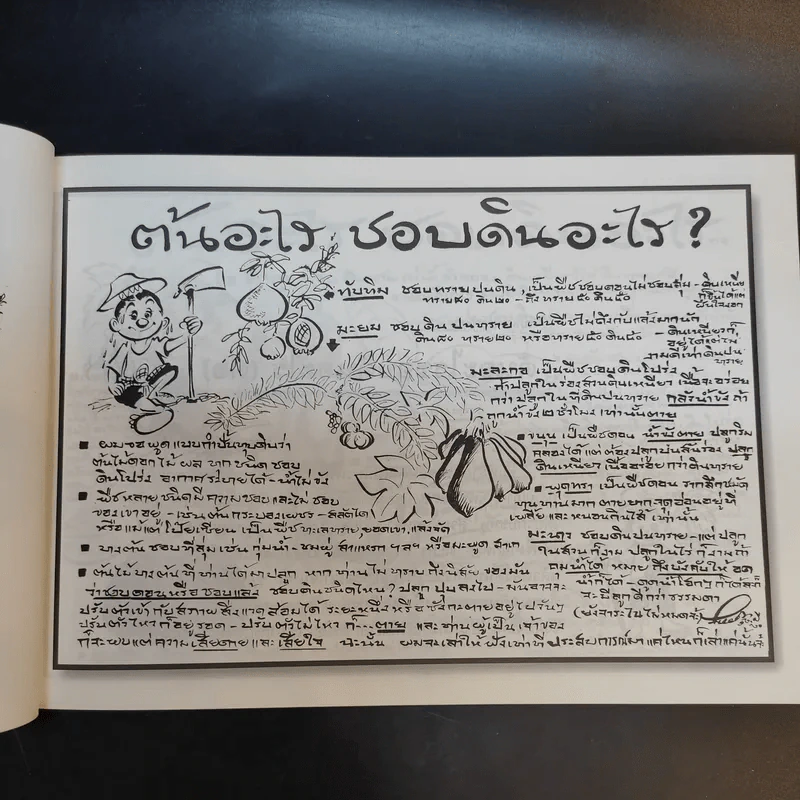 ต้นอะไร ชอบดินอะไร ?
ทับทิม ชอบทรายปนดิน, เป็นพืชชอบดอนไม่ชอบลุ่ม - ดินเหนียว
ทราย๘๐ ดิน๒๐ - ถึงทราย๕๐ ดิน๕๐
ก็ขึ้นได้แต่
มะยม ชอบดินปนทราย เป็นพืชไม่ถึงกับแล้งมากนัก
ดิน๘๐ ทราย๒๐ หรือทราย๕๐ ดิน๕๐
- ดินเหนียวก็
อยู่ได้แต่ไม่
งามดีเท่าดินปน
ทราย
มะละกอ เป็นพืชชอบดินโปร่ง
ถ้าปลูกในร่องสวนดินเหนียว เนื้อจะอร่อย
กว่าปลูกในที่ดินปนทราย กลัวน้ำขัง ถ้า
ถูกน้ำขัง ๒ ชั่วโมง เท่านั้นตาย
ขนุน เป็นพืชดอน น้ำขังตาย ปลูกริม
คลองได้ แต่ต้องปลูกบนสันร่อง ปลูก
ดินเหนียว เนื้ออร่อยกว่าดินทราย
พุดทรา เป็นพืชดอน รากลึกชมัด
ทนทานมาก ตายยาก จุดอ่อนอยู่ที่
เพลี้ย และหนอนกินไส้ เท่านั้น
มะนาว ชอบดินปนทราย - แต่ปลูก
ในสวนก็งาม ปลูกในไร่ก็งามถ้า
คุมน้ำได้ หมายถึงบังคับให้อด
น้ำก็ได้ - ดูดน้ำโฮกๆ ก็ได้ละก็
จะมีลูกดีกว่าธรรมดา
(ยังจาระไนไม่หมดจ้ะ)
■ ผมจะพูดแบบกำปั้นทุบดินว่า
ต้นไม้ดอกไม้ผล ทุกชนิด ชอบ
ดินโปร่ง อากาศระบายได้ - น้ำไม่ขัง
■ พืชหลายชนิดมีความชอบและไม่ชอบ
ของเขาอยู่ - เช่นต้นกระบองเพชร - สลัดได
หรือแม้แต่โป๊ยเซียน เป็นพืชทะเลทราย, ยอดเขา, แล้งจัด
■ บางต้นชอบที่ลุ่ม เช่น กุ่มน้ำ - ชมพู่ สาแหรก ฯลฯ หรือมะพูด
■ ต้นไม้บางต้นที่ท่านได้มาปลูก หากท่านไม่ทราบถึงนิสัยของมัน
ว่าชอบดอนหรือชอบแล้ง ชอบดินชนิดไหน? ปลูกปุบลงไป - มันอาจจะ
ปรับตัวเข้ากับสภาพสิ่งแวดล้อมได้ ระยะหนึ่ง หรือซังกะตายอยู่ไปวันๆ
ปรับตัวไหวก็อยู่รอด - ปรับตัวไม่ไหวก็...ตาย และท่านผู้เป็นเจ้าของ
ก็จะพบแต่ความเสียดายและเสียใจ ฉะนั้น ผมจะเล่าให้ฟังเท่าที่ประสบการณ์มา แค่ไหนก็เล่าแค่นั้นจ้ะ